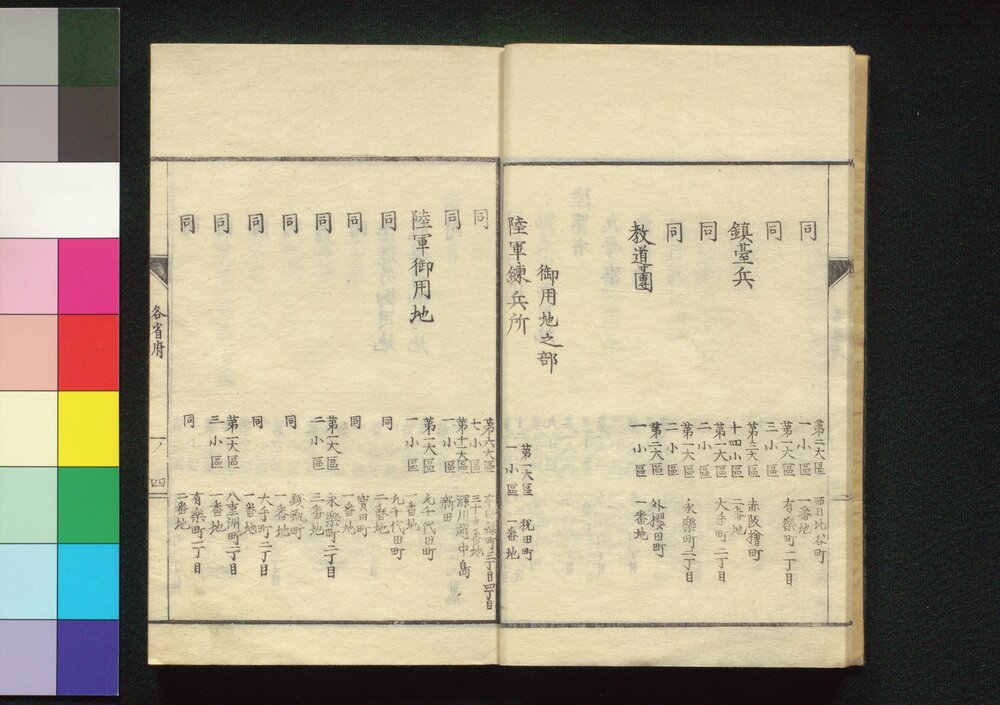 同 第二大區 一小區 西日比谷町 一番地
同 第一大區 三小區 有樂町一丁目
鎮臺兵 第三大區 十四小區 赤阪檜町 二番地
同 第一大區 二小區 大手町二丁目
同 第一大區 二小區 永樂町二丁目
教導團 第二大區 一小區 外櫻田町 一番地
御用地之部
陸軍練兵所 第一大區 一小區 祝田町 一番地
同 第六大區 七小區 町三丁目四丁目
同 第十一大區 一小區 深川越中島 新田
陸軍御用地 第一大區 一小區 元千代田町 一番地
同 同 元千代田町 二番地
同 同 寶田町 一番地
同 第一大區 二小區 永樂町一丁目 二番地
同 同 錢瓶町 一番地
同 同 大手町二丁目 一番地
同 第一大區 三小區 八重洲町二丁目 一番地
同 同 有樂町一丁目 二番地
各省府 四